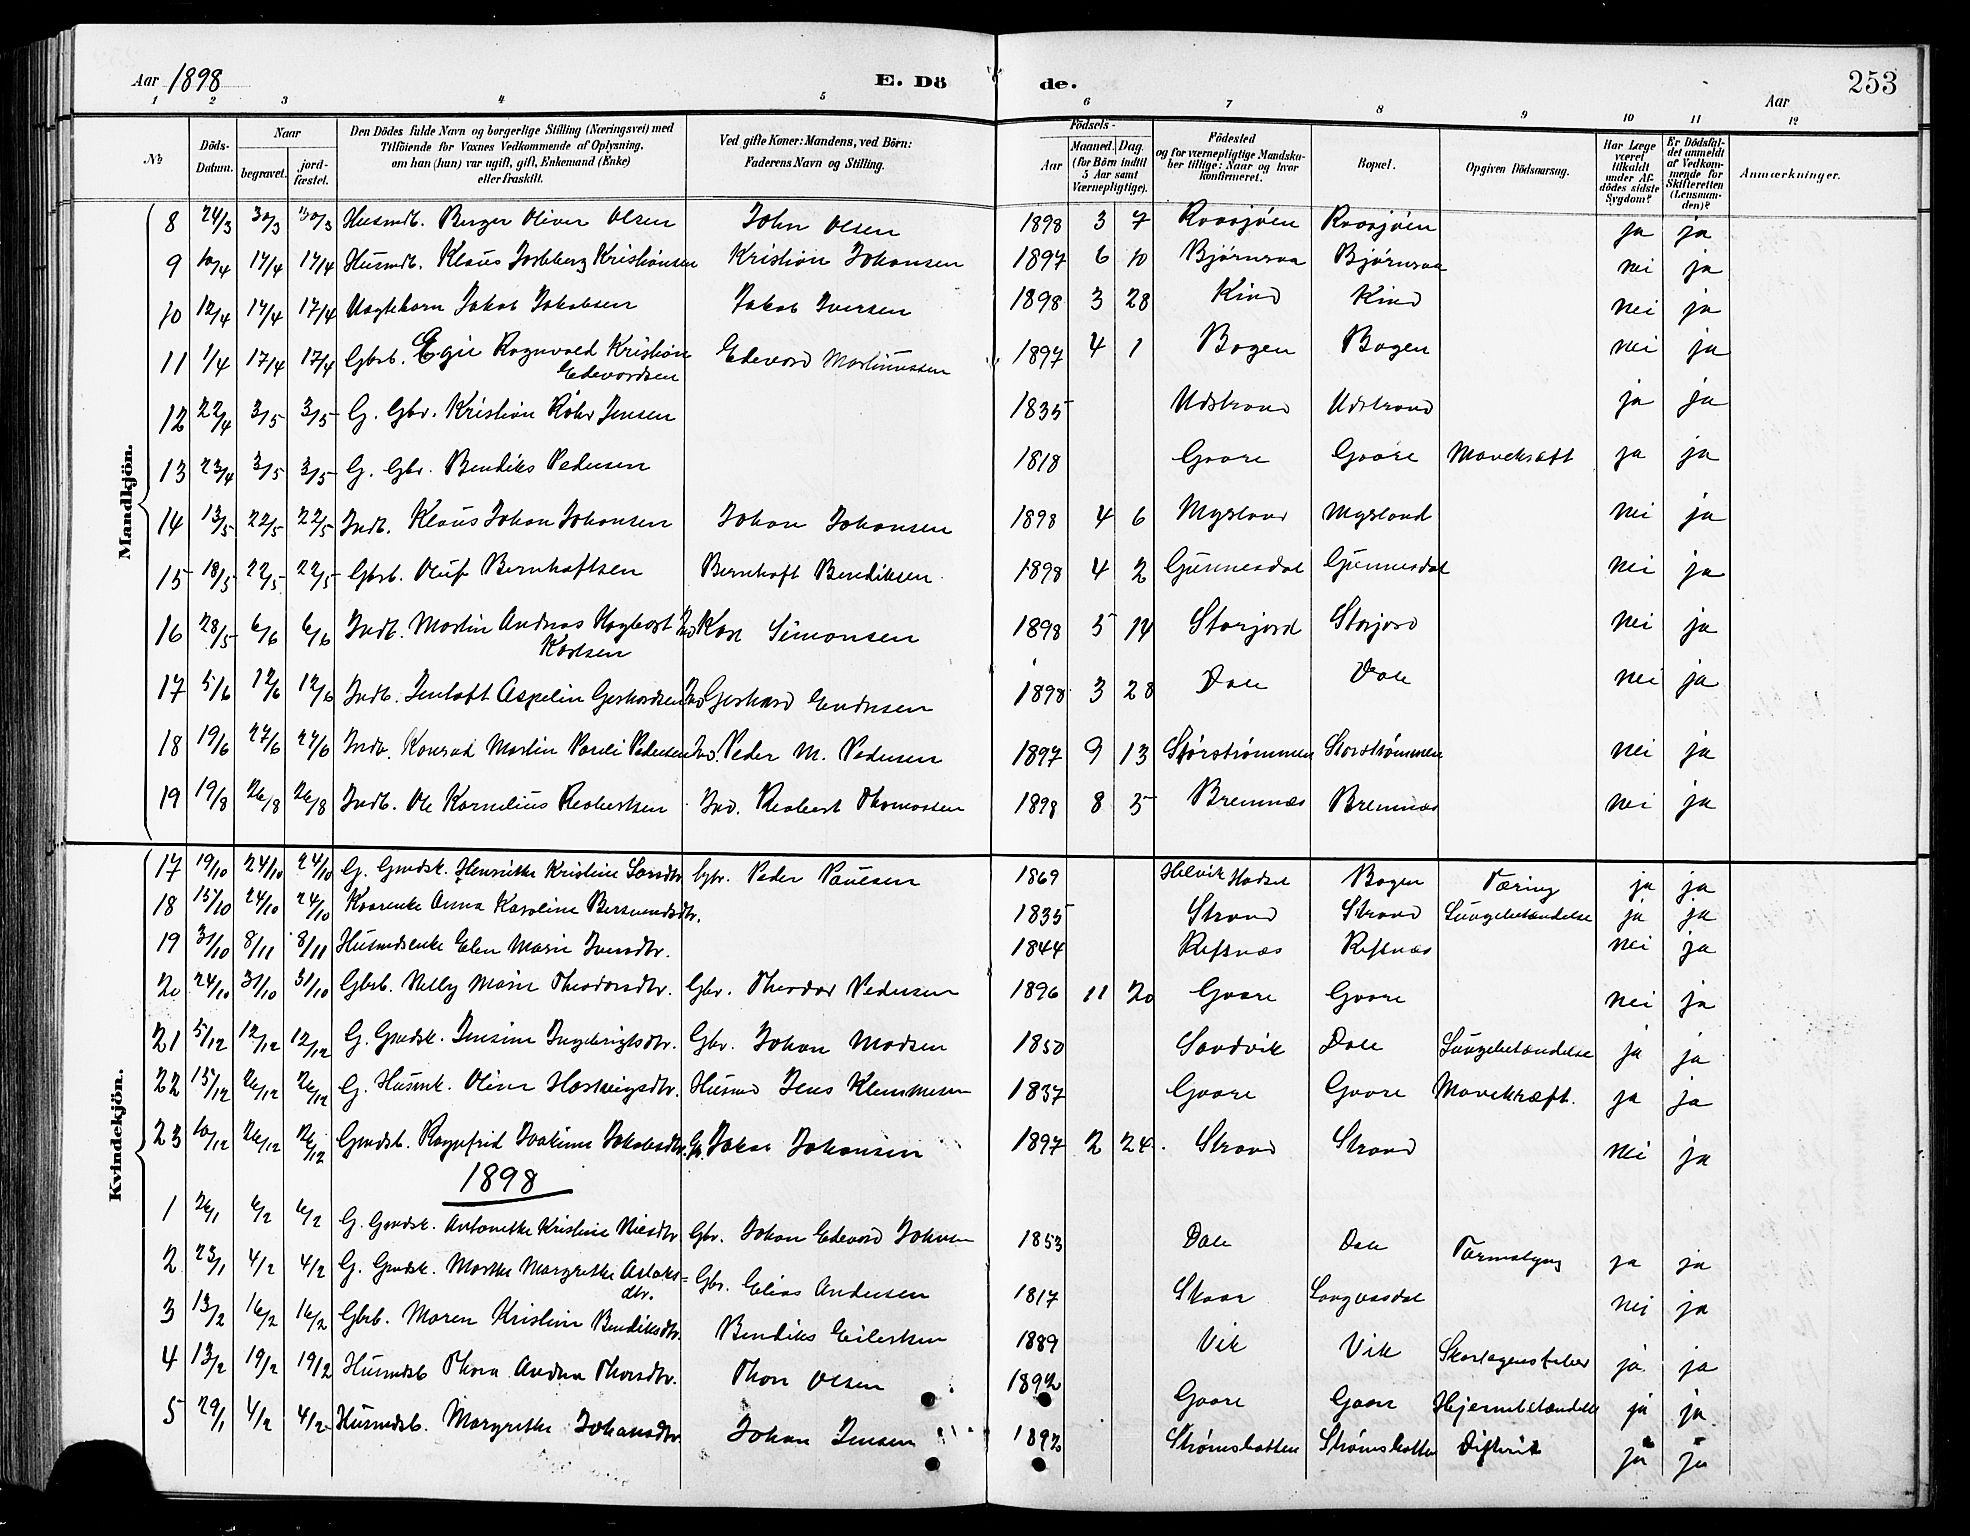 Aar 1898 E. Dö de. Aar 253
1 2 3 4 5 6 7 8 9 10 11 12
No
Döds-Datum.
Naar begravet. jord-fæstet.
Den Dödes fulde Navn og borgerlige Stilling (Næringsvei) med
Tilföiende for Voxnes Vedkommende af Oplysning,
om han (hun) var ugift, gift, Enkemand (Enke)
eller fraskilt.
Ved gifte Koner: Mandens, ved Börn:
Faderens Navn og Stilling.
Födsels-
Aar Maaned. Dag.
(for Börn indtil 5 Aar samt Værnepligtige).
Födested
og for værnepligtige Mandska-
ber tillige: Naar og hvor
konfirmeret.
Bopæl.
Opgiven Dödsaarsag.
Har Læge været tilkaldt under Af-dödes sidste Sygdom?
Er Dödsfal-det anmeldt af Vedkom-mende for Skifteretten (Lensman-den)?
Anmærkninger.
Mandkjön.
8 24/3 30/3 30/3 Husmdb. Berger Oliver Olsen John Olsen 1898 3 7 ja ja
9 10/4 17/4 17/4 Husmdb. Klaus Kristiansen Kristian Johansen 1897 6 10 Bjørnraa Bjørnraa nei ja
10 12/4 17/4 17/4 Uægtebarn Jakob Jakobsen Jakob Iversen 1898 3 28 Kind Kind nei ja
11 1/4 17/4 17/4 Gbrb. Egil Ragnvald Kristian Edevardsen Edevard Martinussen 1897 4 1 Bogen Bogen nei ja
12 22/4 3/5 3/5 G. Gbr. Kristian Røhr Jensen 1835 Udstrand Udstrand ja ja
13 23/4 3/5 3/5 G. Gbr. Bendiks Pedersen 1818 Gaare Gaare Mavekræft ja ja
14 13/5 22/5 22/5 Indb. Klaus Johan Johansen Johan Johansen 1898 4 6 Mysland Mysland nei ja
15 18/5 22/5 22/5 Gbrb. Oluf Bernhaftsen Bernhoft Bendiksen 1898 4 2 Gunnesdal Gunnesdal nei ja
16 28/5 6/6 6/6 Indb. Martin Andreas Hagbart Karlsen Ind Karl Simonsen 1898 5 14 Storjord Storjord nei ja
17 5/6 12/6 12/6 Indb. Jentoft Aspelin Gerhardsen Ind Gerhard Endresen 1898 3 28 Dale Dale nei ja
18 19/6 27/6 27/6 Indb. Konrad Martin Pauli Pedersen Ind. Peder M. Pedersen 1897 9 13 Storstrømmen Storstrømmen nei ja
19 19/8 26/8 26/8 Indb. Ole Kornelius Robertsen Ind. Robert Thomassen 1898 8 5 Bremnæs Bremnæs nei ja
Kvindekjön.
17 19/10 24/10 24/10 G. Gmdsk. Henrikke Kristine Larsdtr. Gbr. Peder Paulsen 1869 Hadsel Bogen Tæring ja ja
18 15/10 24/10 24/10 Anna Karoline 1835 Strand Strand Lungebetændelse ja ja
19 31/10 8/11 8/11 Husmdsenke Elen Marie Iversdtr. 1844 Refsnæs Refsnæs nei ja
20 24/10 31/10 31/10 Gbrb. Nelly Marie Theodorsdtr. Gbr. Theodor Pedersen 1896 11 20 Gaare Gaare nei ja
21 5/12 12/12 12/12 G. Gmdsk. Jensine Ingebrigtsdtr. Gbr. Johan Madsen 1850 Sandvik Dale Lungebetændelse ja ja
22 15/12 26/12 26/12 G. Husmk. Oline Hartvigsdtr. Husmd Jens Klemmesen 1837 Gaare Gaare Mavekræft. ja ja
23 10/12 26/12 26/12 Gmdsb. Ragnfrid Joakime Jakobsdtr. Jakob Johansen 1897 2 24 Strand Strand nei ja
1898
1 26/1 6/2 6/2 G. Gmdsk. Antonette Kristine Nilsdtr Gbr. Johan Edevard Johnsen 1853 Dale Dale ja ja
2 23/1 4/2 4/2 G. Gmdsk. Marthe Margrethe Aslaks=dtr. Gbr. Elias Andersen 1817 Skaar Langvasdal nei ja
3 13/2 16/2 16/2 Gbrb. Maren Kristine Bendiksdtr. Bendiks Eilertsen 1889 Vik Vik Skarlagensfeber ja ja
4 13/2 19/2 19/2 Husmdsb Thora Andrea Thorsdtr. Thor Olsen 1892 Gaare Gaare Hjernebetændelse ja ja
5 29/1 4/2 4/2 Husmdsb. Margrethe Johansdtr Johan Jensen 1892 Strømsbotten Strømsbotten Difterit ja ja